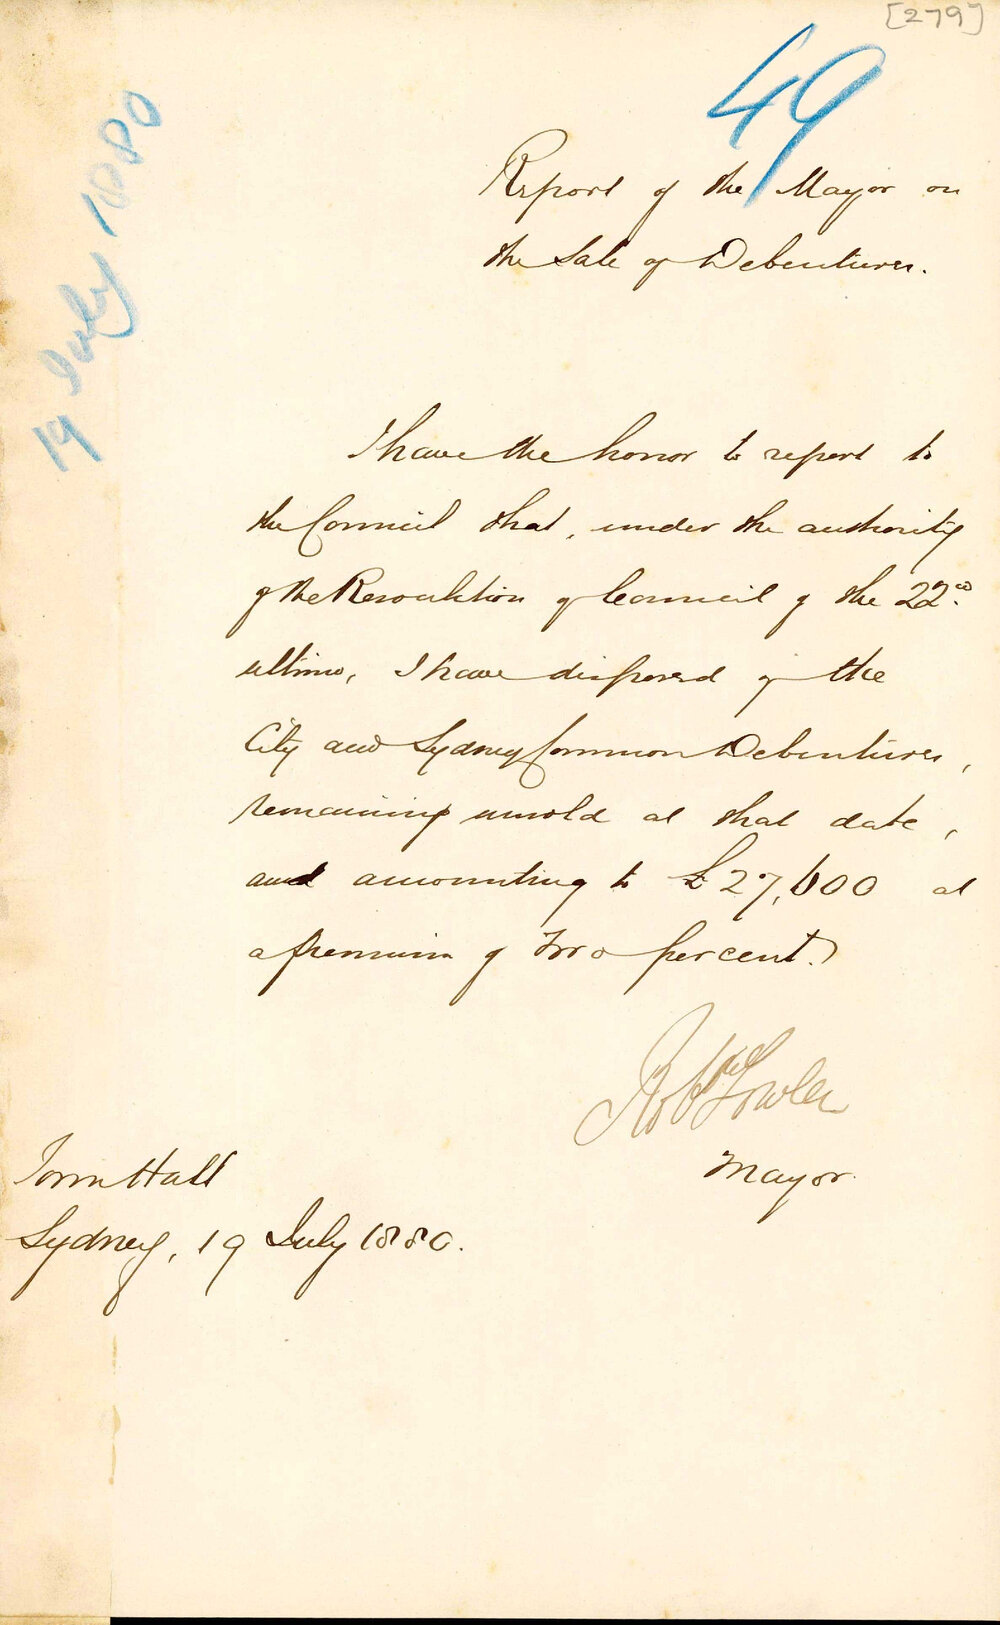 [279]
49
19 July 1880
Report of the Mayor on
the Sale of Debentures.
I have the honor to report to
the Council that, under the authority
of the Resolution of Council of the 22nd
ultimo, I have disposed of the
City and Sydney Common Debentures,
remaining unsold at that date,
and amounting to £27,600 at
a premium of Two per cent.
Robt Fowler
Mayor.
Town Hall
Sydney, 19 July 1880.